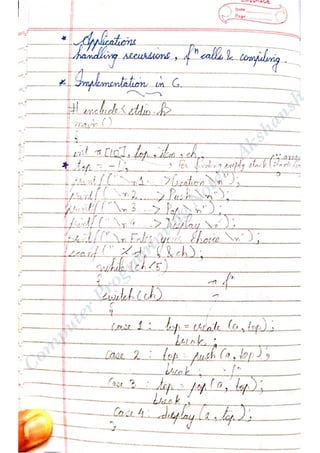 Date
Page
* Applications
handling recursions, fⁿ calls & compiling.
* Implementation in C.
# include <stdio.h>
main ()
{
int a [10], top, ch;
* top = -1;
printf ("\n 1 . . . > Creation \n");
printf ("\n 2 . . . > Push \n");
printf ("\n 3 . . > Pop \n");
printf ("\n 4 . . > Display \n");
printf ("\n Enter your choice \n");
scanf ("%d", &ch);
while (ch<5)
{
switch (ch)
{
case 1 : top = create (a, top);
break;
case 2 : top = push (a, top);
break;
case 3 : top = pop (a, top);
break;
case 4 : display (a, top);
}
Computer Programming
Akshansh